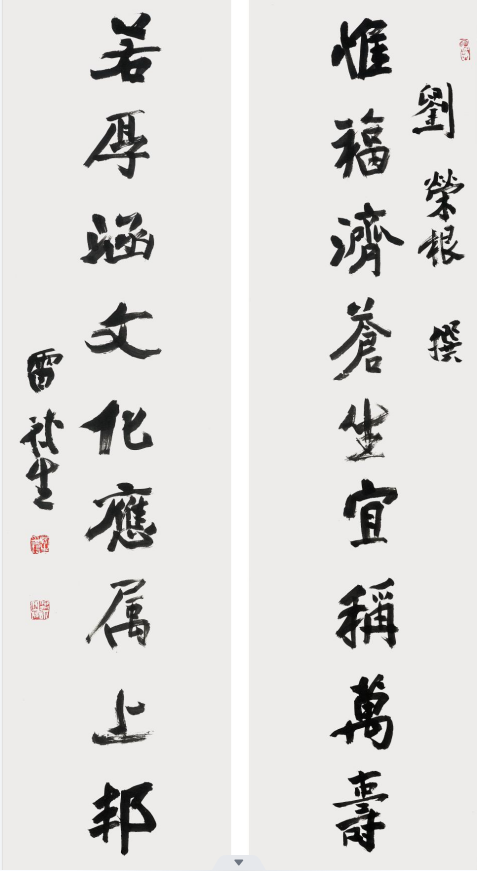 劉榮根 撰
惟福濟蒼生宜稱萬壽
若厚涵文化應属上邦
雷 生